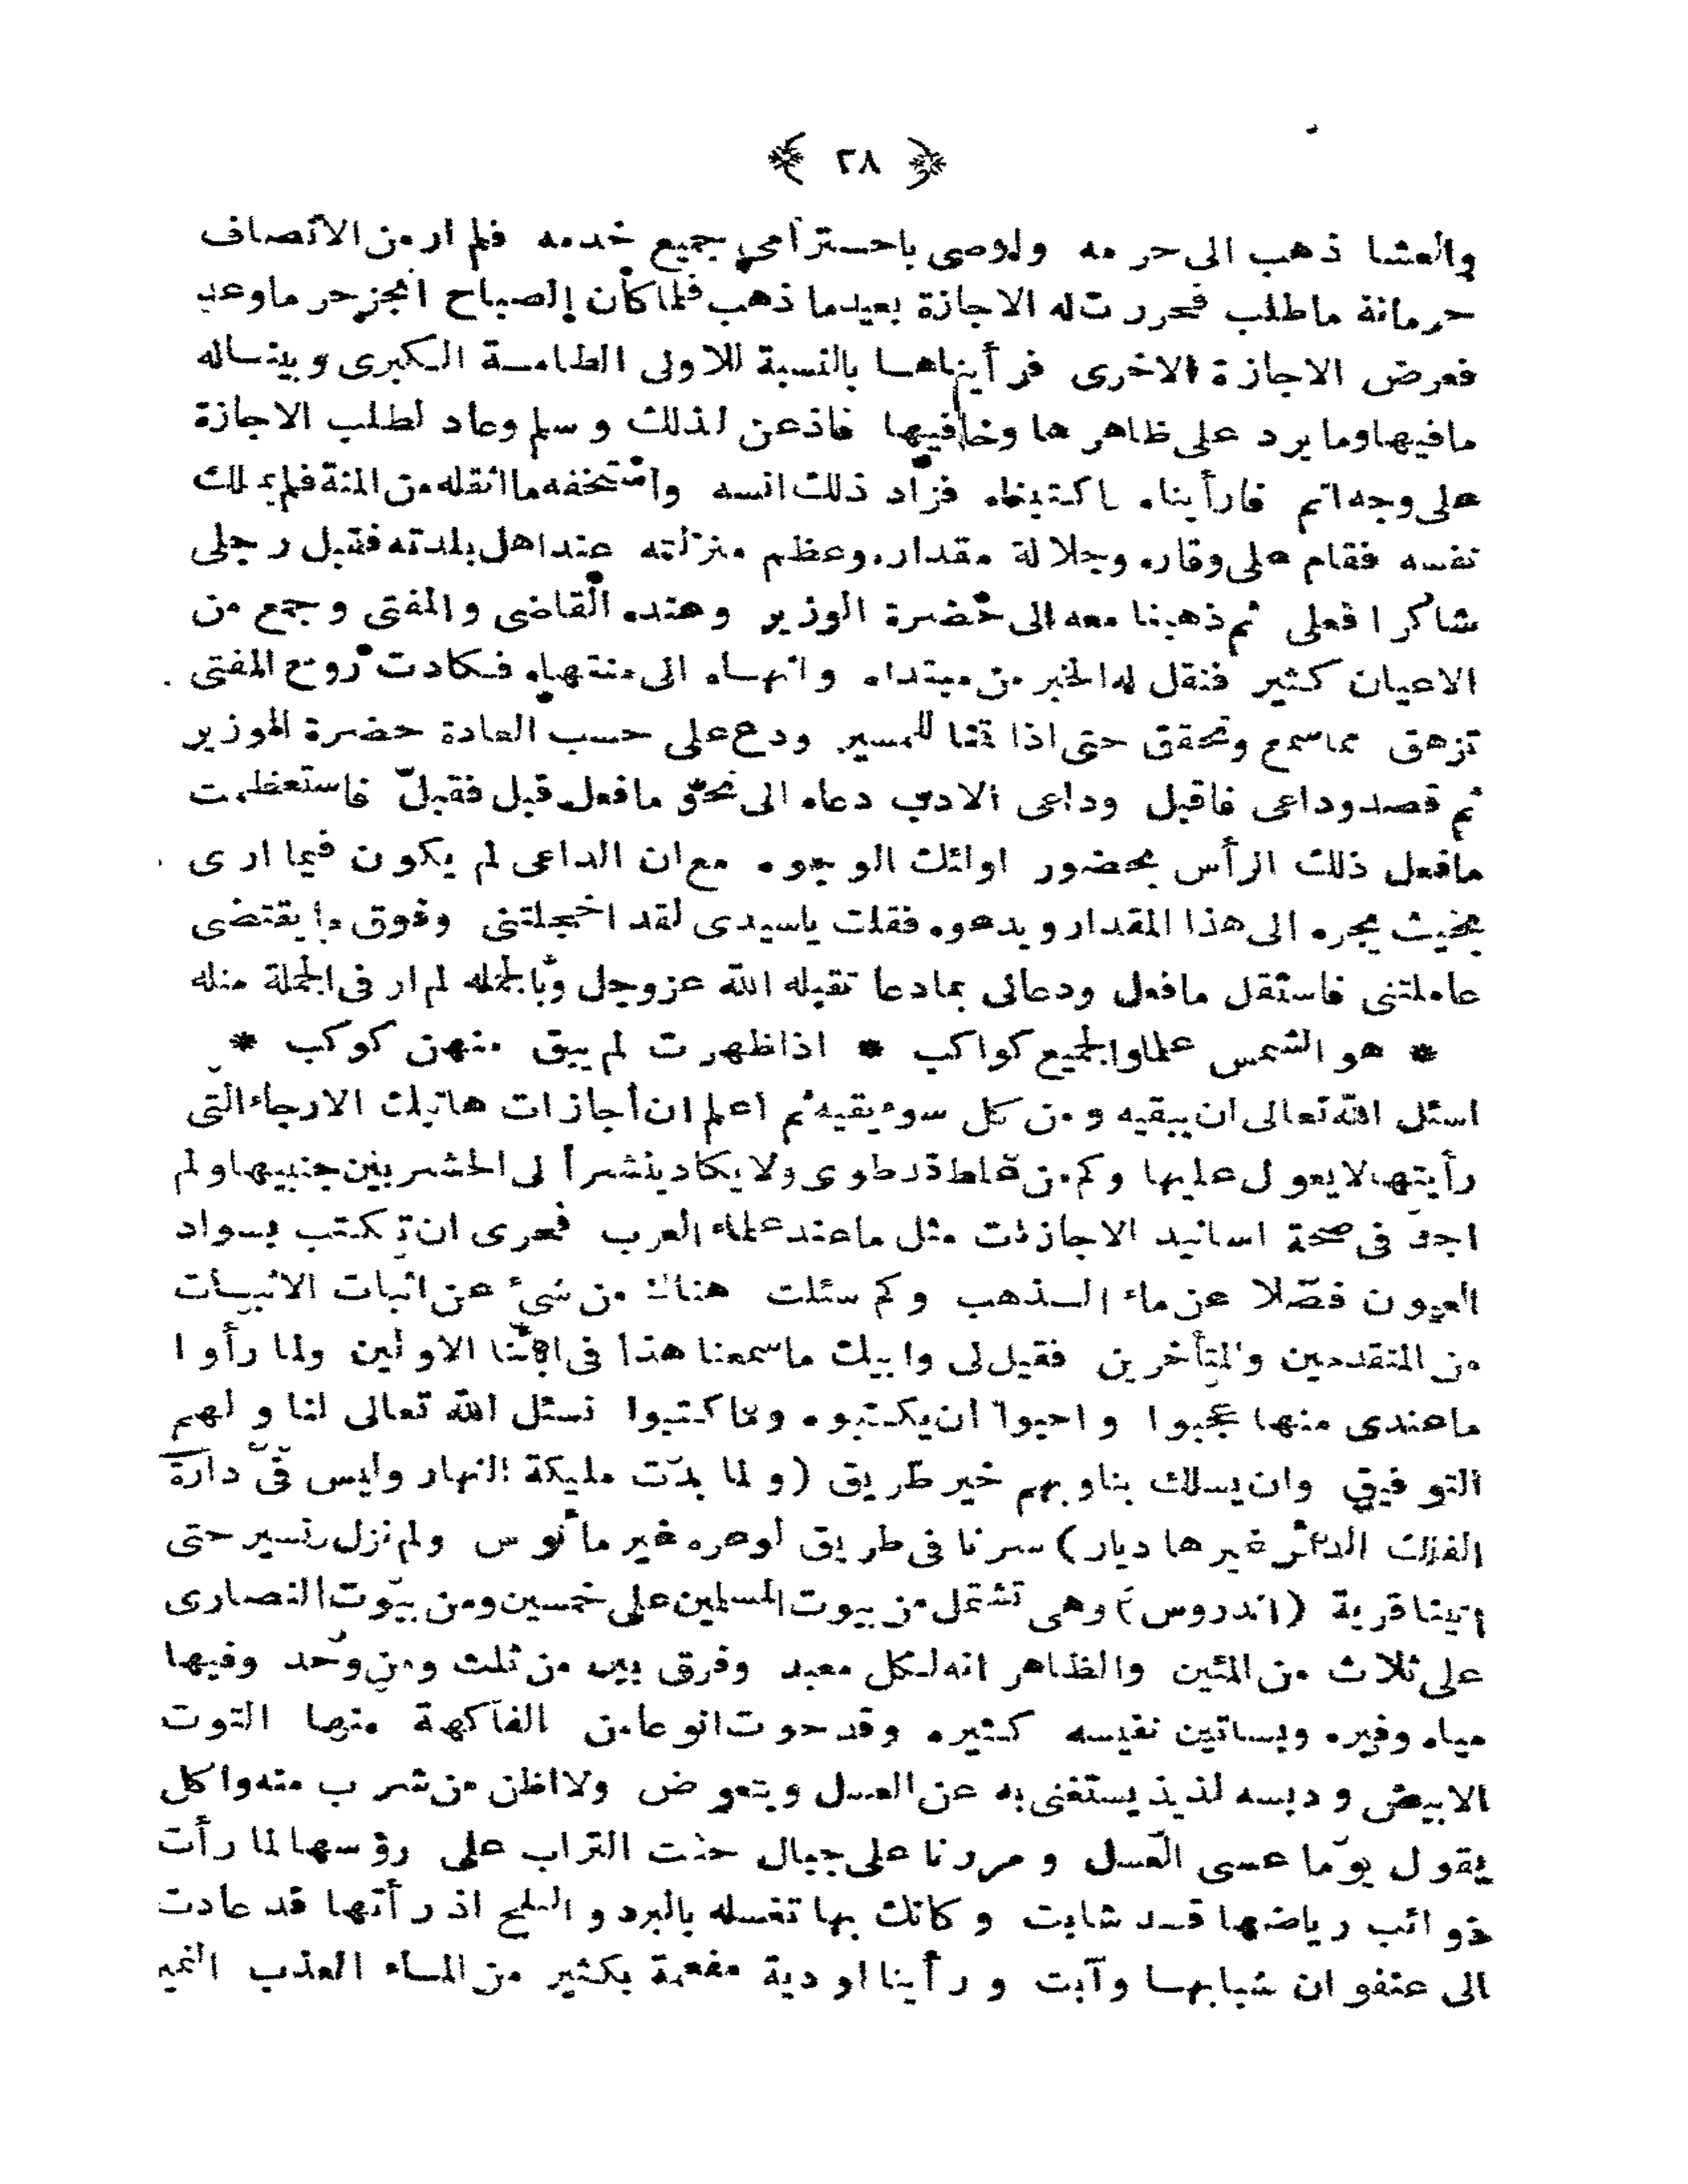 ﴿ ٢٨ ﴾
والعشا ذهب الى حرمه واوصى باحسترامى جميع خدمه فلم ار من الانصاف
حرمانه ماطلب فحررت له الاجازة بعيدما ذهب فلما كان الصباح انجز حر ماوعد
فعرض الاجازة الاخرى فرأيناهـا بالنسبة للاولى الطامـة الـكبرى وبينـاله
مافيها وما يرد على ظاهرها وخافيها فاذعن لذلك وسلم وعاد لطلب الاجازة
على وجه اتم فارأيناه اكتبناه فزاد ذلك انسه واستخفه ما اثقله من المنة فلم يملك
نفسه فقام على وقاره وجلالة مقداره وعظم منزلته عند اهل بلدته فقبل رجلى
شاكرا فعلى ثم ذهبنا معه الى حضرة الوزير وعنده القاضى والمفتى وجمع من
الاعيان كثير فنقل له الخبر من مبتداه وانهـاه الى منتهاه فـكادت روح المفتى
تزهق مماسمع وتحقق حتى اذا قنا للمسير ودع على حسب العادة حضرة الوزير
ثم قصد وداعى فاقبل وداعى الادب دعاه الى نحو مافعل قبل فقبل فاستعظمت
مافعل ذلك الرأس بحضور اوائك الوجوه مع ان الداعى لم يكون فيما ارى
بحيث يجره الى هذا المقدار ويدعوه فقلت ياسيدى لقد اخجلتنى وفوق مايقتضى
عاملتنى فاستقل مافعل ودعالى بمادعا تقبله الله عزوجل وبالجمله لم ار فى الجملة مثله
* هو الشمس علما والجميع كواكب * اذا ظهرت لم يبق منهن كوكب *
اسئل الله تعالى ان يبقيه ومن كل سوء يقيه ثم اعلم ان اجازات هاتيك الارجاء التى
رأيتها لايعول عليها وكم من غلط قد طوى ولا يكاد ينشر الى الحشر بين جنبيها ولم
اجد فى صحة اسانيد الاجازات مثل ماعند علماء العرب فحرى ان تكتب بسواد
العيون فضلا عن ماء الـذهب وكم سئلت هناك من شئ عن اثبات الاثبـات
من المتقدمين والمتأخرين فقيل لى وابيك ماسمعنا هذا فى ابائنا الاولين ولما رأوا
ماعندى منها عجبوا واحبوا ان يكـتبوه وما كـتبوا نسئل الله تعالى لنا ولهم
التوفيق وان يسلك بناوبهم خير طريق (ولما بدت مليكة النهار وليس فى دارة
الفلك الدائر غيرها ديار) سرنا فى طريق لوعره غير مأنوس ولم نزل نسير حتى
اتينا قرية (اندروس) وهى تشتمل من بيوت المسلمين على خمسين ومن بيوت النصارى
على ثلاث من المئين والظاهر انه لـكل معبد وفرق بين من ثلث ومن وحد وفيها
مياه وفيره وبساتين نفيسه كـثيره وقد حوت انوعا من الفاكهة منها التوت
الابيض ودبسه لذيذ يستغنى به عن العسل ويتعوض ولا اظن من شرب منه واكل
يقول يوما عسى العسل ومررنا على جبال حثت التراب على رؤسها لما رأت
ذوائب رياضها قـد شابت وكانك بها تغسله بالبرد والـلج اذ رأتها قد عادت
الى عنفوان شبابهـا وآبت ورأينا اودية مفعمة بكثير من المـاء العذب النمير